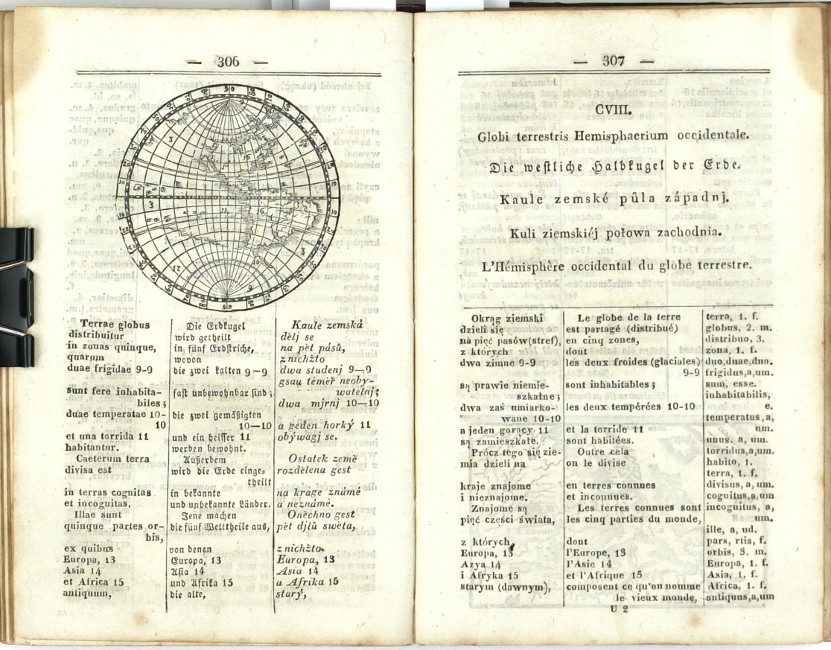 — 306 —
Terrae globus
distribuitur
in zonas quinque,
quarum
duae frigidae 9-9
sunt fere inhabita-
biles;
duae temperatae 10-
10
et una torrida 11
habitantur.
Caeterum terra
divisa est
in terras cognitas
et incognitas.
Illae sunt
quinque partes or-
bis,
ex quibus
Europa, 13
Asia 14
et Africa 15
antiquum,
Die Erdkugel
wird getheilt
in fünf Erdstriche,
wovon
die zwei kalten 9—9
fast unbewohnbar sind;
die zwei gemäßigten
10—10
und ein heisser 11
werden bewohnt.
Außerdem
wird die Erde einge-
theilt
in bekannte
und unbekannte Länder.
Jene machen
die fünf Welttheile aus,
von denen
Europa, 13
Asia 14
und Afrika 15
die alte,
Kaule zemská
dělj se
na pět pásů,
z nichžto
dwa studenj 9—9
gsau téměř neoby-
watelnj;
dwa mjrnj 10—10
a geden horký 11
obýwagj se.
Ostatek země
rozdělena gest
na krage známé
a neznámé.
Oněchno gest
pět djlů swěta,
z nichžto
Europa, 13
Asia 14
a Afrika 15
starý,
— 307 —
CVIII.
Globi terrestris Hemisphaerium occidentale.
Die westliche Halbkugel der Erde.
Kaule zemské půla západnj.
Kuli ziemskiéj połowa zachodnia.
L'Hémisphère occidental du globe terrestre.
Okrąg ziemski
dzieli się
na pięć pasów(stref),
z których
dwa zimne 9-9
są prawie niemie-
szkalne;
dwa zaś umiarko-
wane 10-10
a jeden gorący 11
są zamieszkałe.
Prócz tego się zie-
mia dzieli na
kraje znajome
i nieznajome.
Znajome są
pięć części świata,
z których,
Europa, 13
Azya 14
i Afryka 15
starym (dawnym),
Le globe de la terre
est partagé (distribué)
en cinq zones,
dont
les deux froides (glaciales)
9-9
sont inhabitables;
les deux tempérées 10-10
et la torride 11
sont habitées.
Outre cela
on le divise
en terres connues
et inconnues.
Les terres connues sont
les cinq parties du monde,
dont
l'Europe, 13
l'Asie 14
et l'Afrique 15
composent ce qu'on nomme
le vieux monde,
terra, 1. f.
globus, 2. m.
distribuo, 3.
zona, 1. f.
duo,duae,duo.
frigidus,a,um.
sum, esse.
inhabitabilis,
e.
temperatus,a,
um.
unus, a, um.
torridus,a,um.
habito, 1.
terra, 1. f.
divisus, a, um.
cognitus,a,um
incognitus, a,
um.
ille, a, ud.
pars, rtis, f.
orbis, 3. m.
Europa, 1. f.
Asia, 1. f.
Africa, 1. f.
antiquus,a,um
U 2